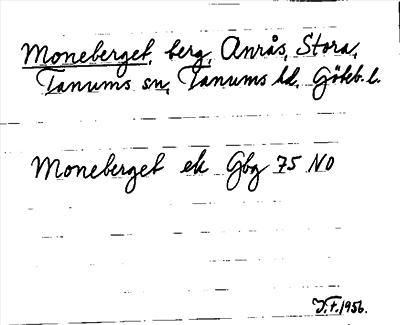 Moneberget, berg, Anrås, Stora,
Tanums sn, Tanums hd, Göteb. l.
Moneberget ek Gbg 75 NO
J.F. 1956.